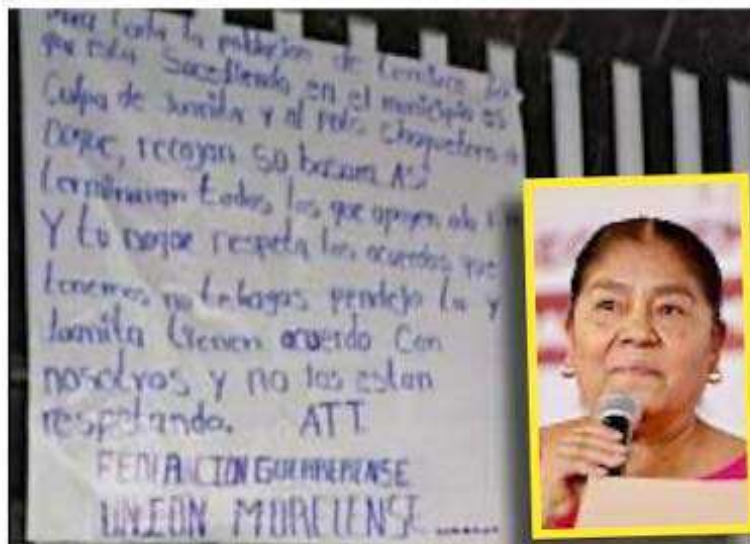 Para toda la poblacion de
que esta Sucediendo en el municipio es
Culpa de Juanita y al puto chaquetero
Duque, recojan so basura AS
terminaran todos los que apoyen
Y tu respeta los acuerdos que
tenemos no te hagas pendejo tu y
Juanita tienen acuerdo Con
nosotros y no los estan
respetando. ATT
FEDIANCION GUERRERENSE
UNION MORELENSE ......